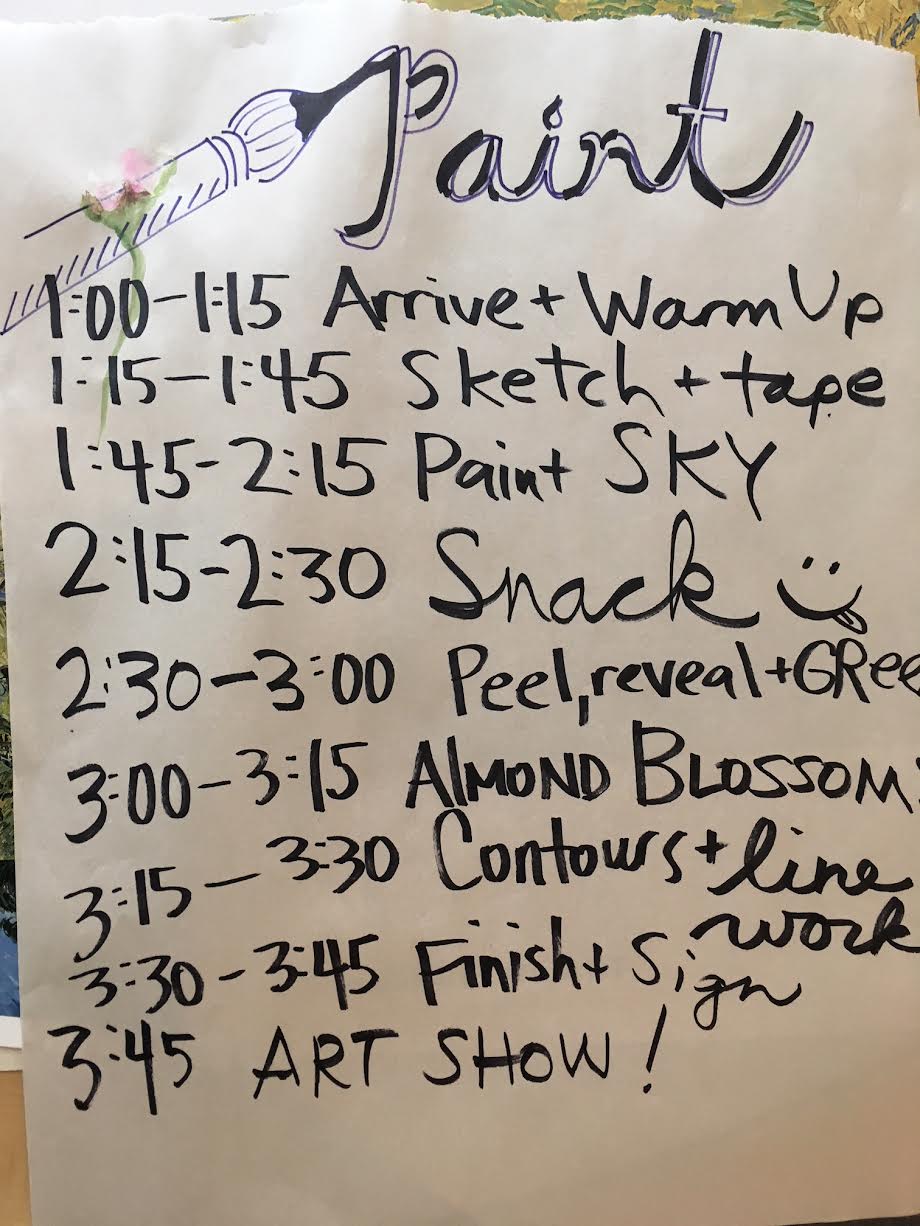 Paint
1:00-1:15 Arrive + Warm Up
1:15-1:45 Sketch + tape
1:45-2:15 Paint SKY
2:15-2:30 Snack
2:30-3:00 Peel, reveal + GRee
3:00-3:15 ALMOND BLOSSOM
3:15-3:30 Contours + line
work
3:30-3:45 Finish + Sign
3:45 ART SHOW!